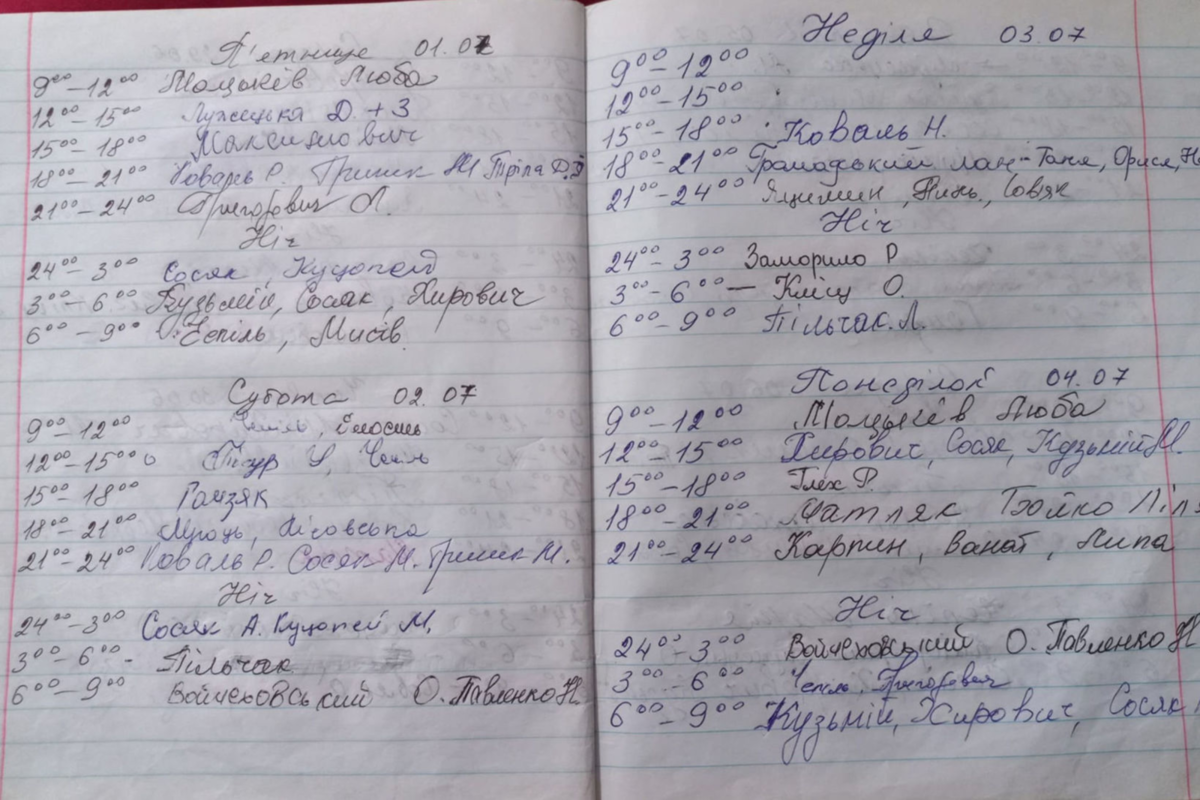 П'ятниця 01.07
9⁰⁰-12⁰⁰ Мацьків Люба
12⁰⁰-15⁰⁰ Лужецька Д. + З
15⁰⁰-18⁰⁰ Максимович
18⁰⁰-21⁰⁰ Коваль Р. Гришик М Тріпа Д,З
21⁰⁰-24⁰⁰ Григорович Л.
Ніч
24⁰⁰-3⁰⁰ Сосяк, Куцопей
3⁰⁰-6⁰⁰ Кузьмій, Сосяк, Хирович
6⁰⁰-9⁰⁰ Чепіль, Мисів.
Субота 02.07
9⁰⁰-12⁰⁰ Чепіль,
12⁰⁰-15⁰⁰ Чепіль
15⁰⁰-18⁰⁰ Гамзяк
18⁰⁰-21⁰⁰ Мроць, Лісовська
21⁰⁰-24⁰⁰ Коваль Р. Сосяк М. Гришик М.
Ніч
24⁰⁰-3⁰⁰ Сосяк А. Куцопей М.
3⁰⁰-6⁰⁰- Пільчак
6⁰⁰-9⁰⁰ Войчеховський О. Павленко Н.
Неділя 03.07
9⁰⁰-12⁰⁰
12⁰⁰-15⁰⁰
15⁰⁰-18⁰⁰ Коваль Н.
18⁰⁰-21⁰⁰ Грамадський Таня, Орися,
21⁰⁰-24⁰⁰ Яцишин, Линь, Совяк
Ніч
24⁰⁰-3⁰⁰ Заморило Р
3⁰⁰-6⁰⁰ — Кліщ О.
6⁰⁰-9⁰⁰ Пільчак Л.
Понеділок 04.07
9⁰⁰-12⁰⁰ Мацьків Люба
12⁰⁰-15⁰⁰ Хирович, Сосяк, Кузьмій М.
15⁰⁰-18⁰⁰ Глех Р.
18⁰⁰-21⁰⁰ Матляк Бойко Ліля
21⁰⁰-24⁰⁰ Карпин, Ванат, Липа
Ніч
24⁰⁰-3⁰⁰ Войчеховський О. Павленко Н
3⁰⁰-6⁰⁰ Чепіль, Григорович
6⁰⁰-9⁰⁰ Кузьмій, Хирович, Сосяк